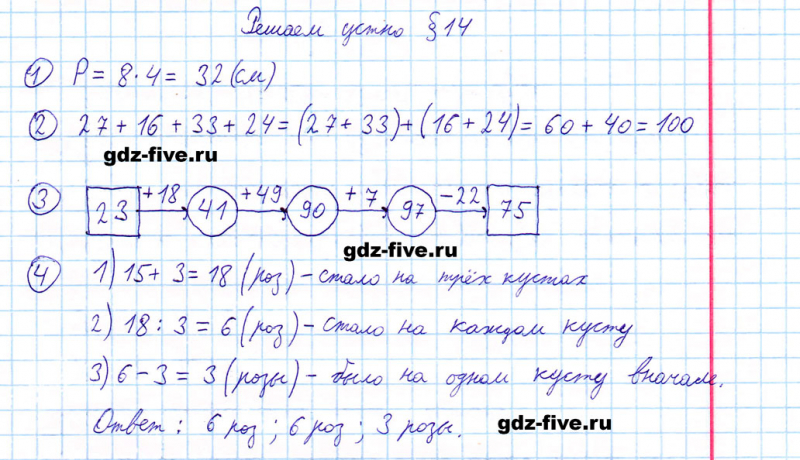 Решаем устно §14
1 P = 8 · 4 = 32 (см)
2 27 + 16 + 33 + 24 = (27 + 33) + (16 + 24) = 60 + 40 = 100
gdz-five.ru
3 23 +18 41 +49 90 +7 97 −22 75
gdz-five.ru
4 1) 15 + 3 = 18 (роз) – стало на трёх кустах
2) 18 : 3 = 6 (роз) – стало на каждом кусту
3) 6 − 3 = 3 (розы) – было на одном кусту вначале.
Ответ: 6 роз; 6 роз; 3 розы.
gdz-five.ru